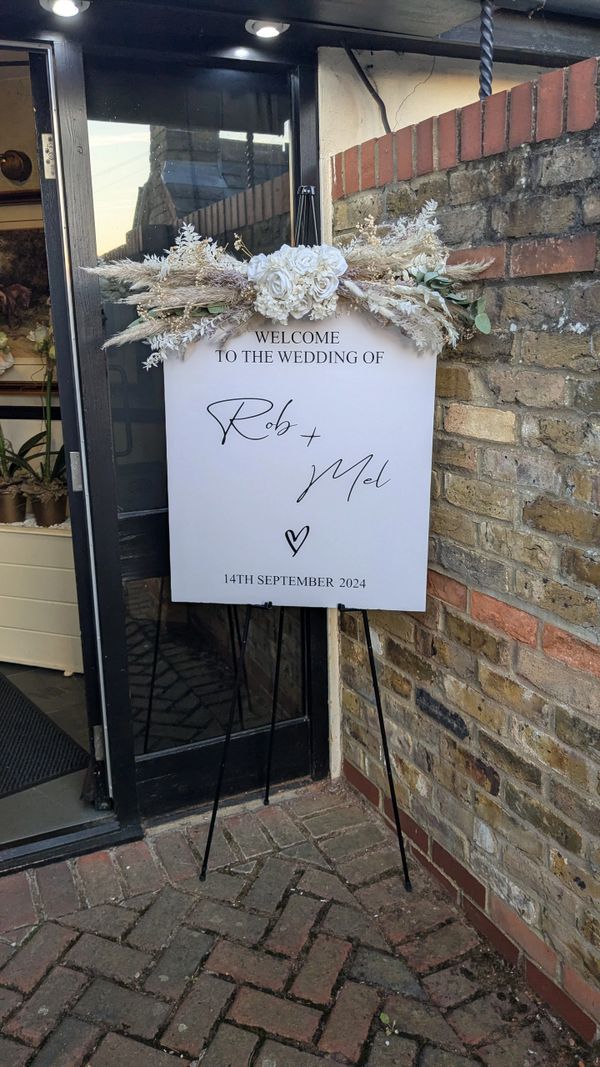 WELCOME
TO THE WEDDING OF
Rob
+
Mel
14TH SEPTEMBER 2024